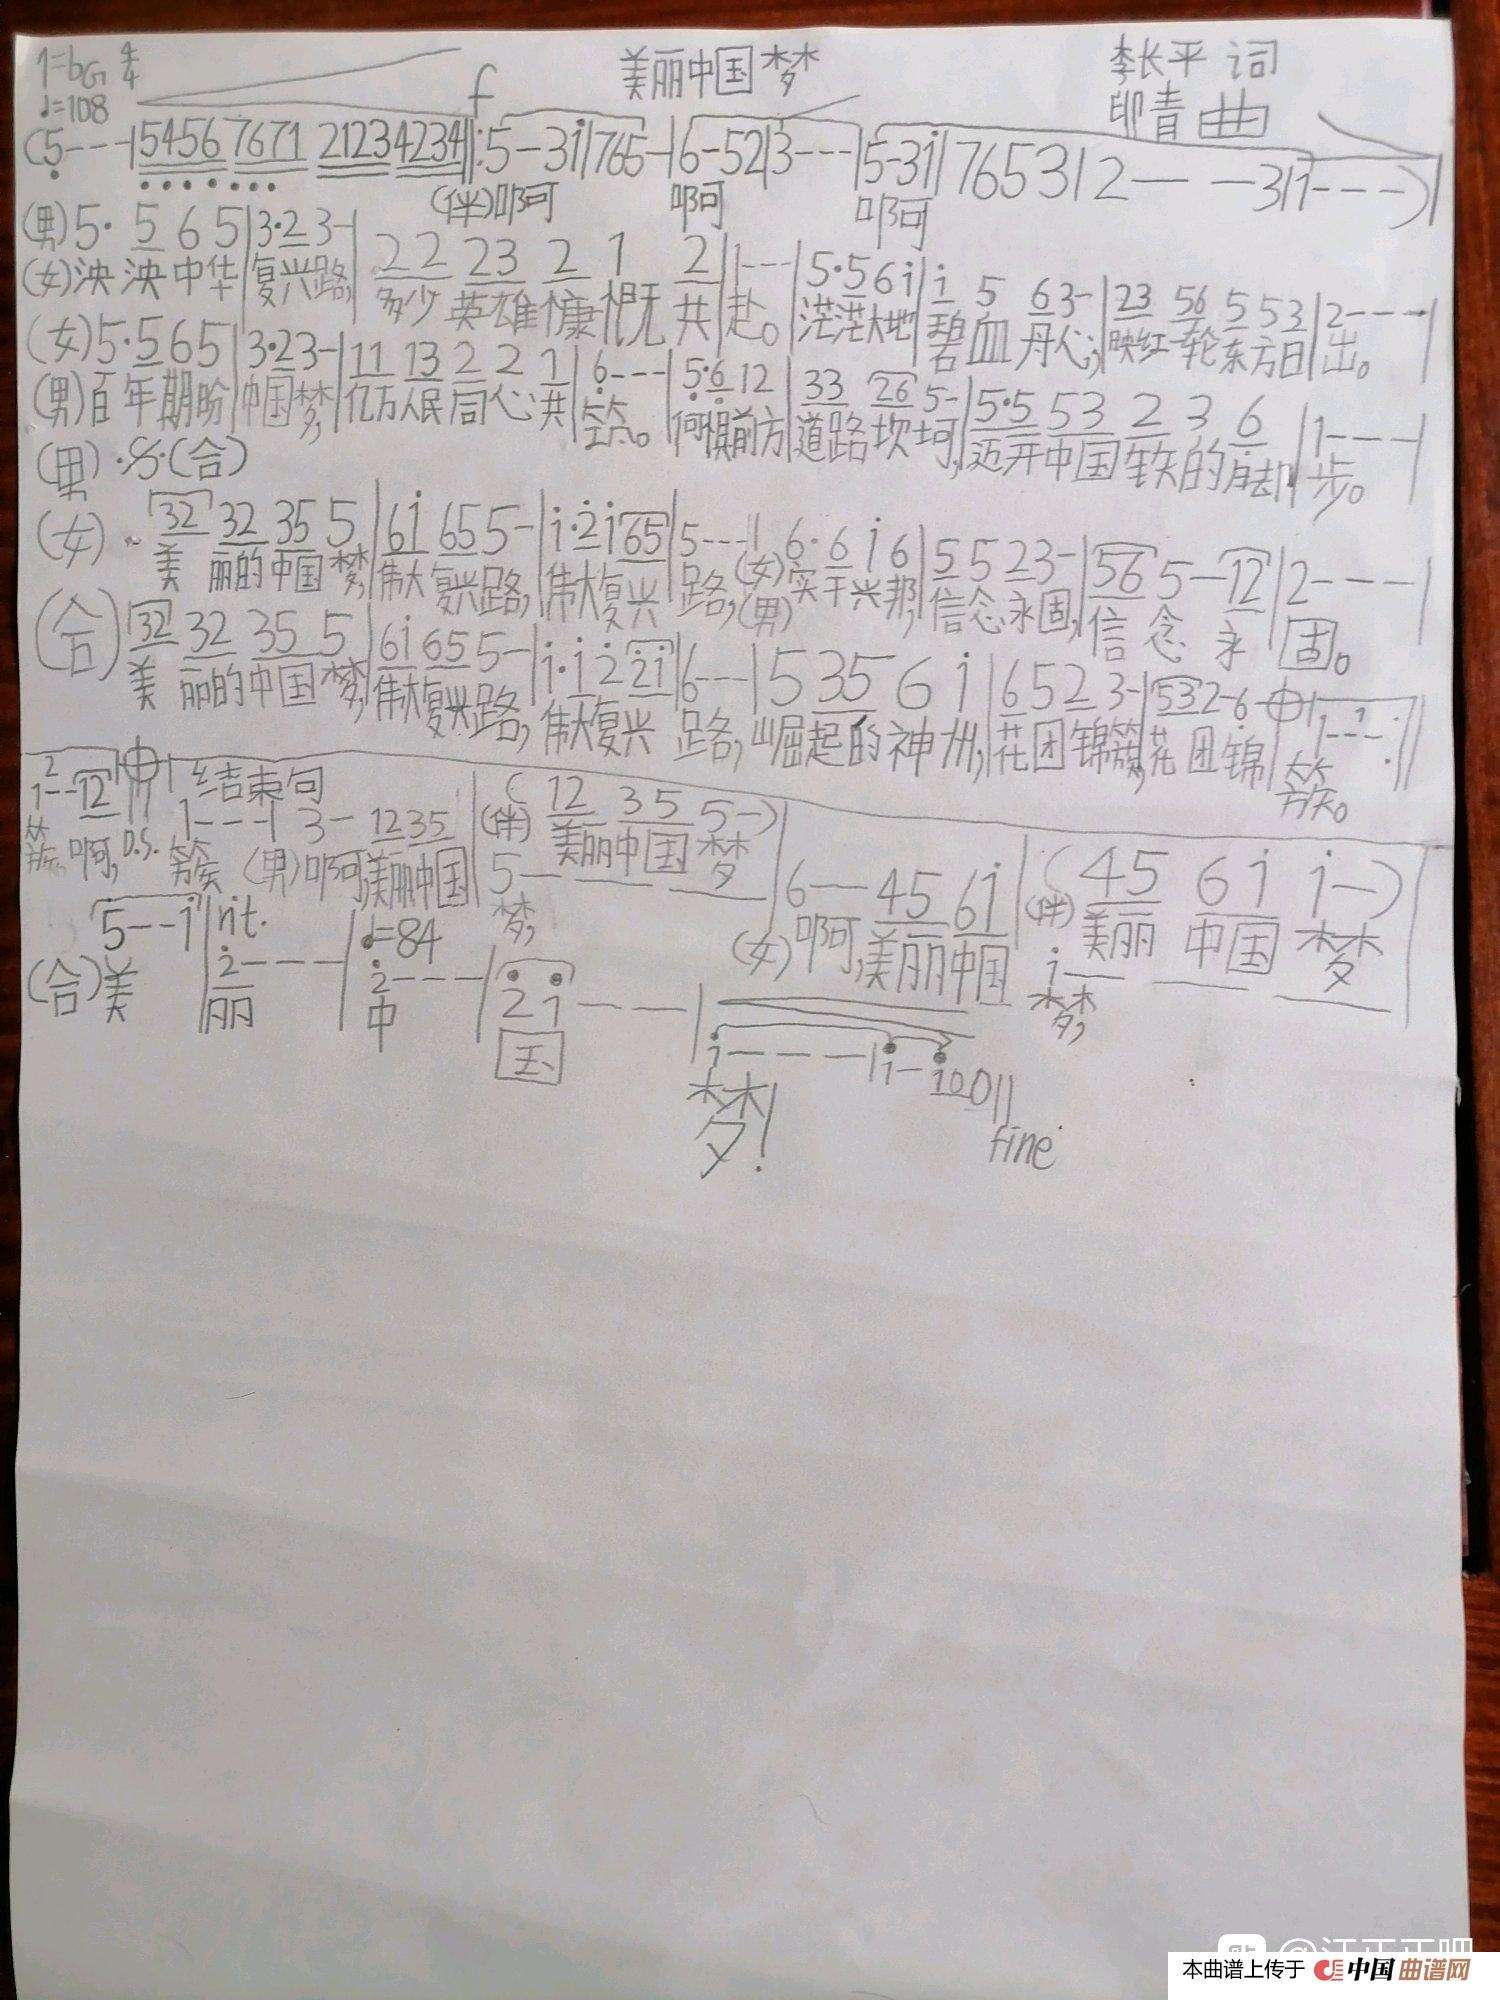 1=bG 4/4 美丽中国梦 李长平 词
♩=108 f 印青 曲
(5---|5456 7671 2123 4234‖:5-3i|765-|6-52|3---|5-3i|76531|2---31|1---)|
(伴)啊 啊 啊
(男)5· 5 6 5|3·2 3-|2 2 23 2 1 2|1---|5·5 6 i|i 5 6 3-|23 56 5 5 3|2---|
(女)泱 泱 中 华 复兴路, 多少 英雄 慷 慨 共 赴。 茫茫大地 碧血 丹心, 映红一轮东方日 出。
(女)5·5 6 5|3·2 3-|11 13 2 2 1|6---|5·6 12|33 26 5-|5·5 53 2 3 6|1---|
(男)百年期盼 中国梦, 亿万人民同心共 筑。 何惧前方 道路坎坷, 迈开中国铁的脚 步。
(男)·S·(合)
(女) 32 32 35 5|6i 65 5-|i·2 i 65|5---|6·6 i 6|5 5 2 3-|56 5-12|2---|
美 丽的中国梦, 伟大复兴路, 伟大复兴 路,(女)实干兴邦, 信念永固, 信 念 永 固。
(男)
(合)32 32 35 5|6i 65 5-|i·i 2 2i|6---|5 35 6 i|6 5 2 3-|53 2-6|1---:‖
美 丽的中国梦, 伟大复兴路, 伟大复兴 路, 崛起的神州, 花团锦簇, 花 团锦 簇。
1--12‖ 结束句
1---| 3- 1235|(伴)(12 35 5-)
簇 啊, D.S. 簇 (男)啊,美丽中国 美丽中国 梦
5---|6--45 6i|(伴)(45 6i i-)
梦, (女)啊,美丽中国 美丽 中国 梦
i---
梦,
5--i|rit. 2---|♩=84 2---|2i---|i---|i-i00‖
(合)美 丽 中 国 梦!
fine
本曲谱上传于 中国曲谱网